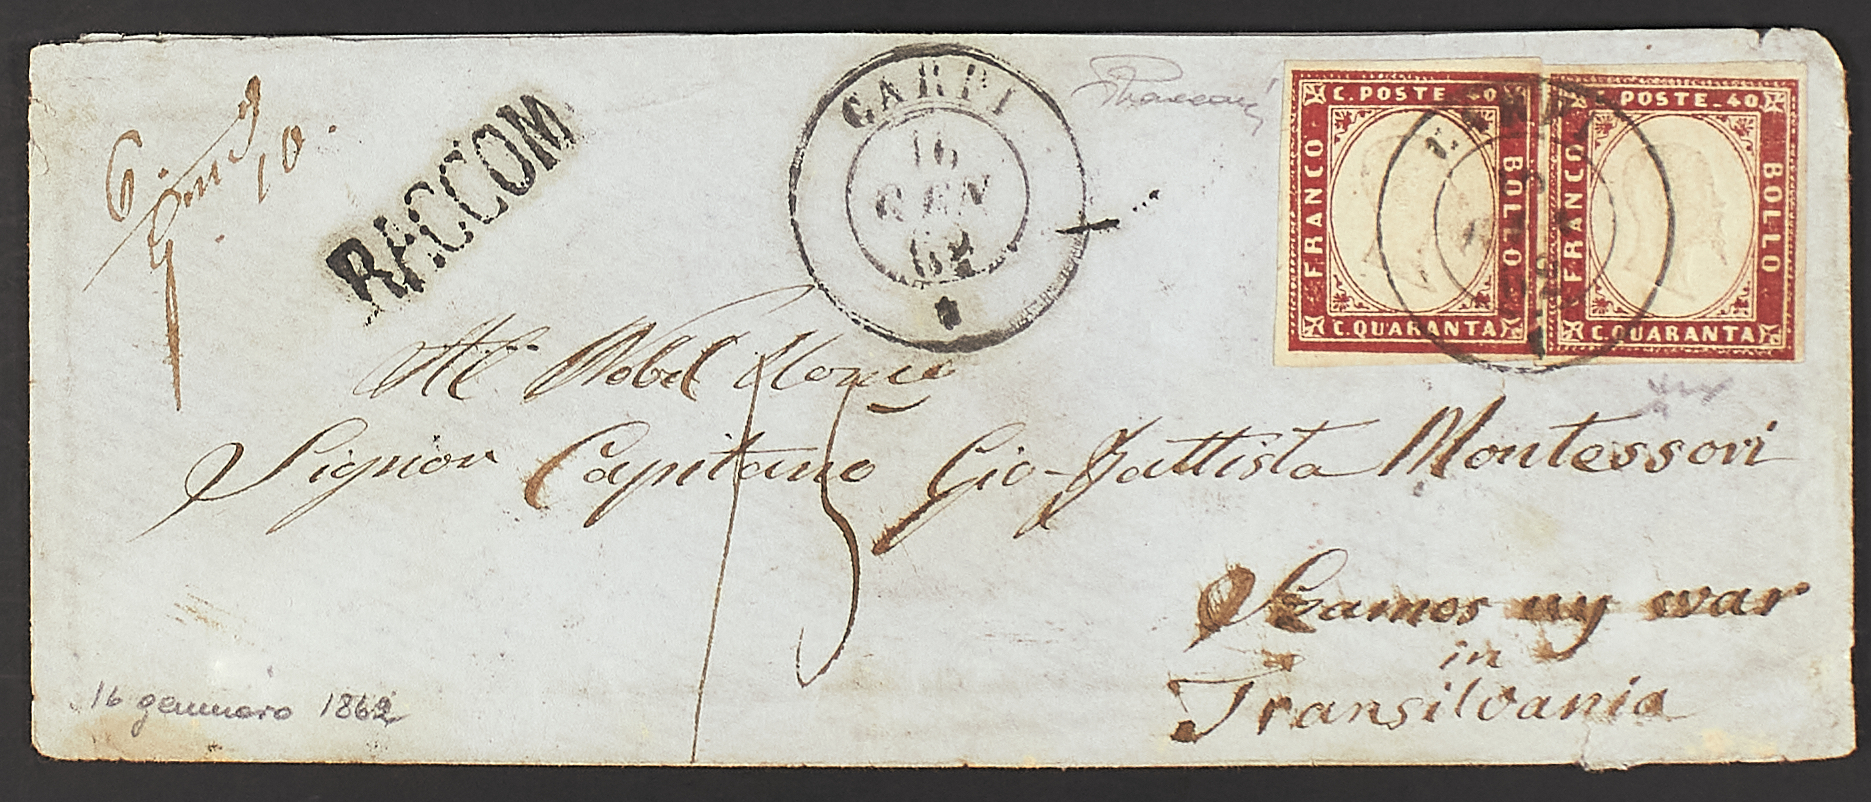 RACCOM
CARPI
16
GEN
62
C. POSTE 40
FRANCO
BOLLO
C. QUARANTA
C. POSTE 40
FRANCO
BOLLO
C. QUARANTA
10
Al Nobil Uomo
15
Signor Capitano Gio-Battista Montessori
Szamos uy war
in
Transilvania
16 gennaio 1862